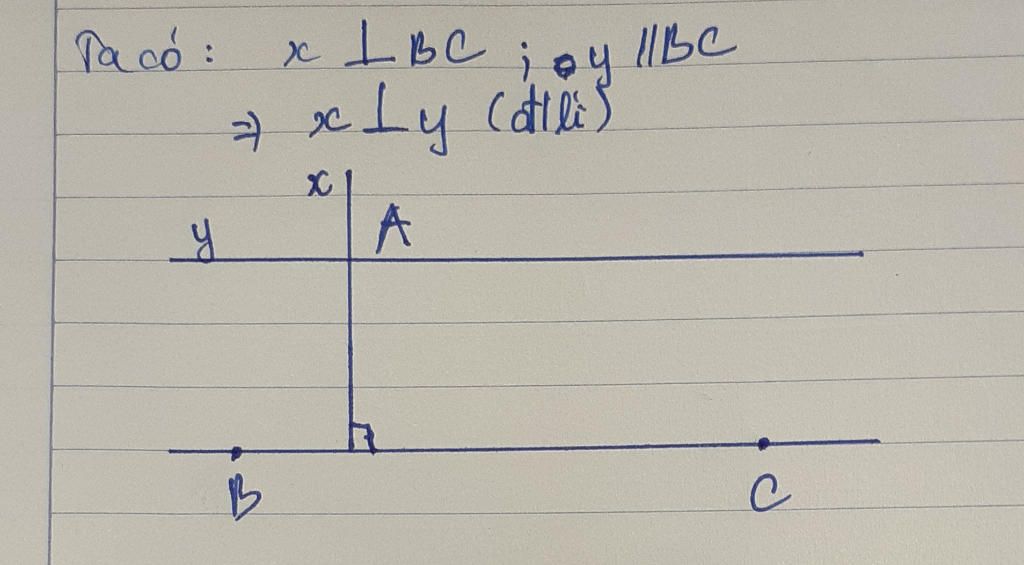 Ta có: x ⊥ BC ; y // BC
⇒ x ⊥ y (đ/lí)
x
y A
B C